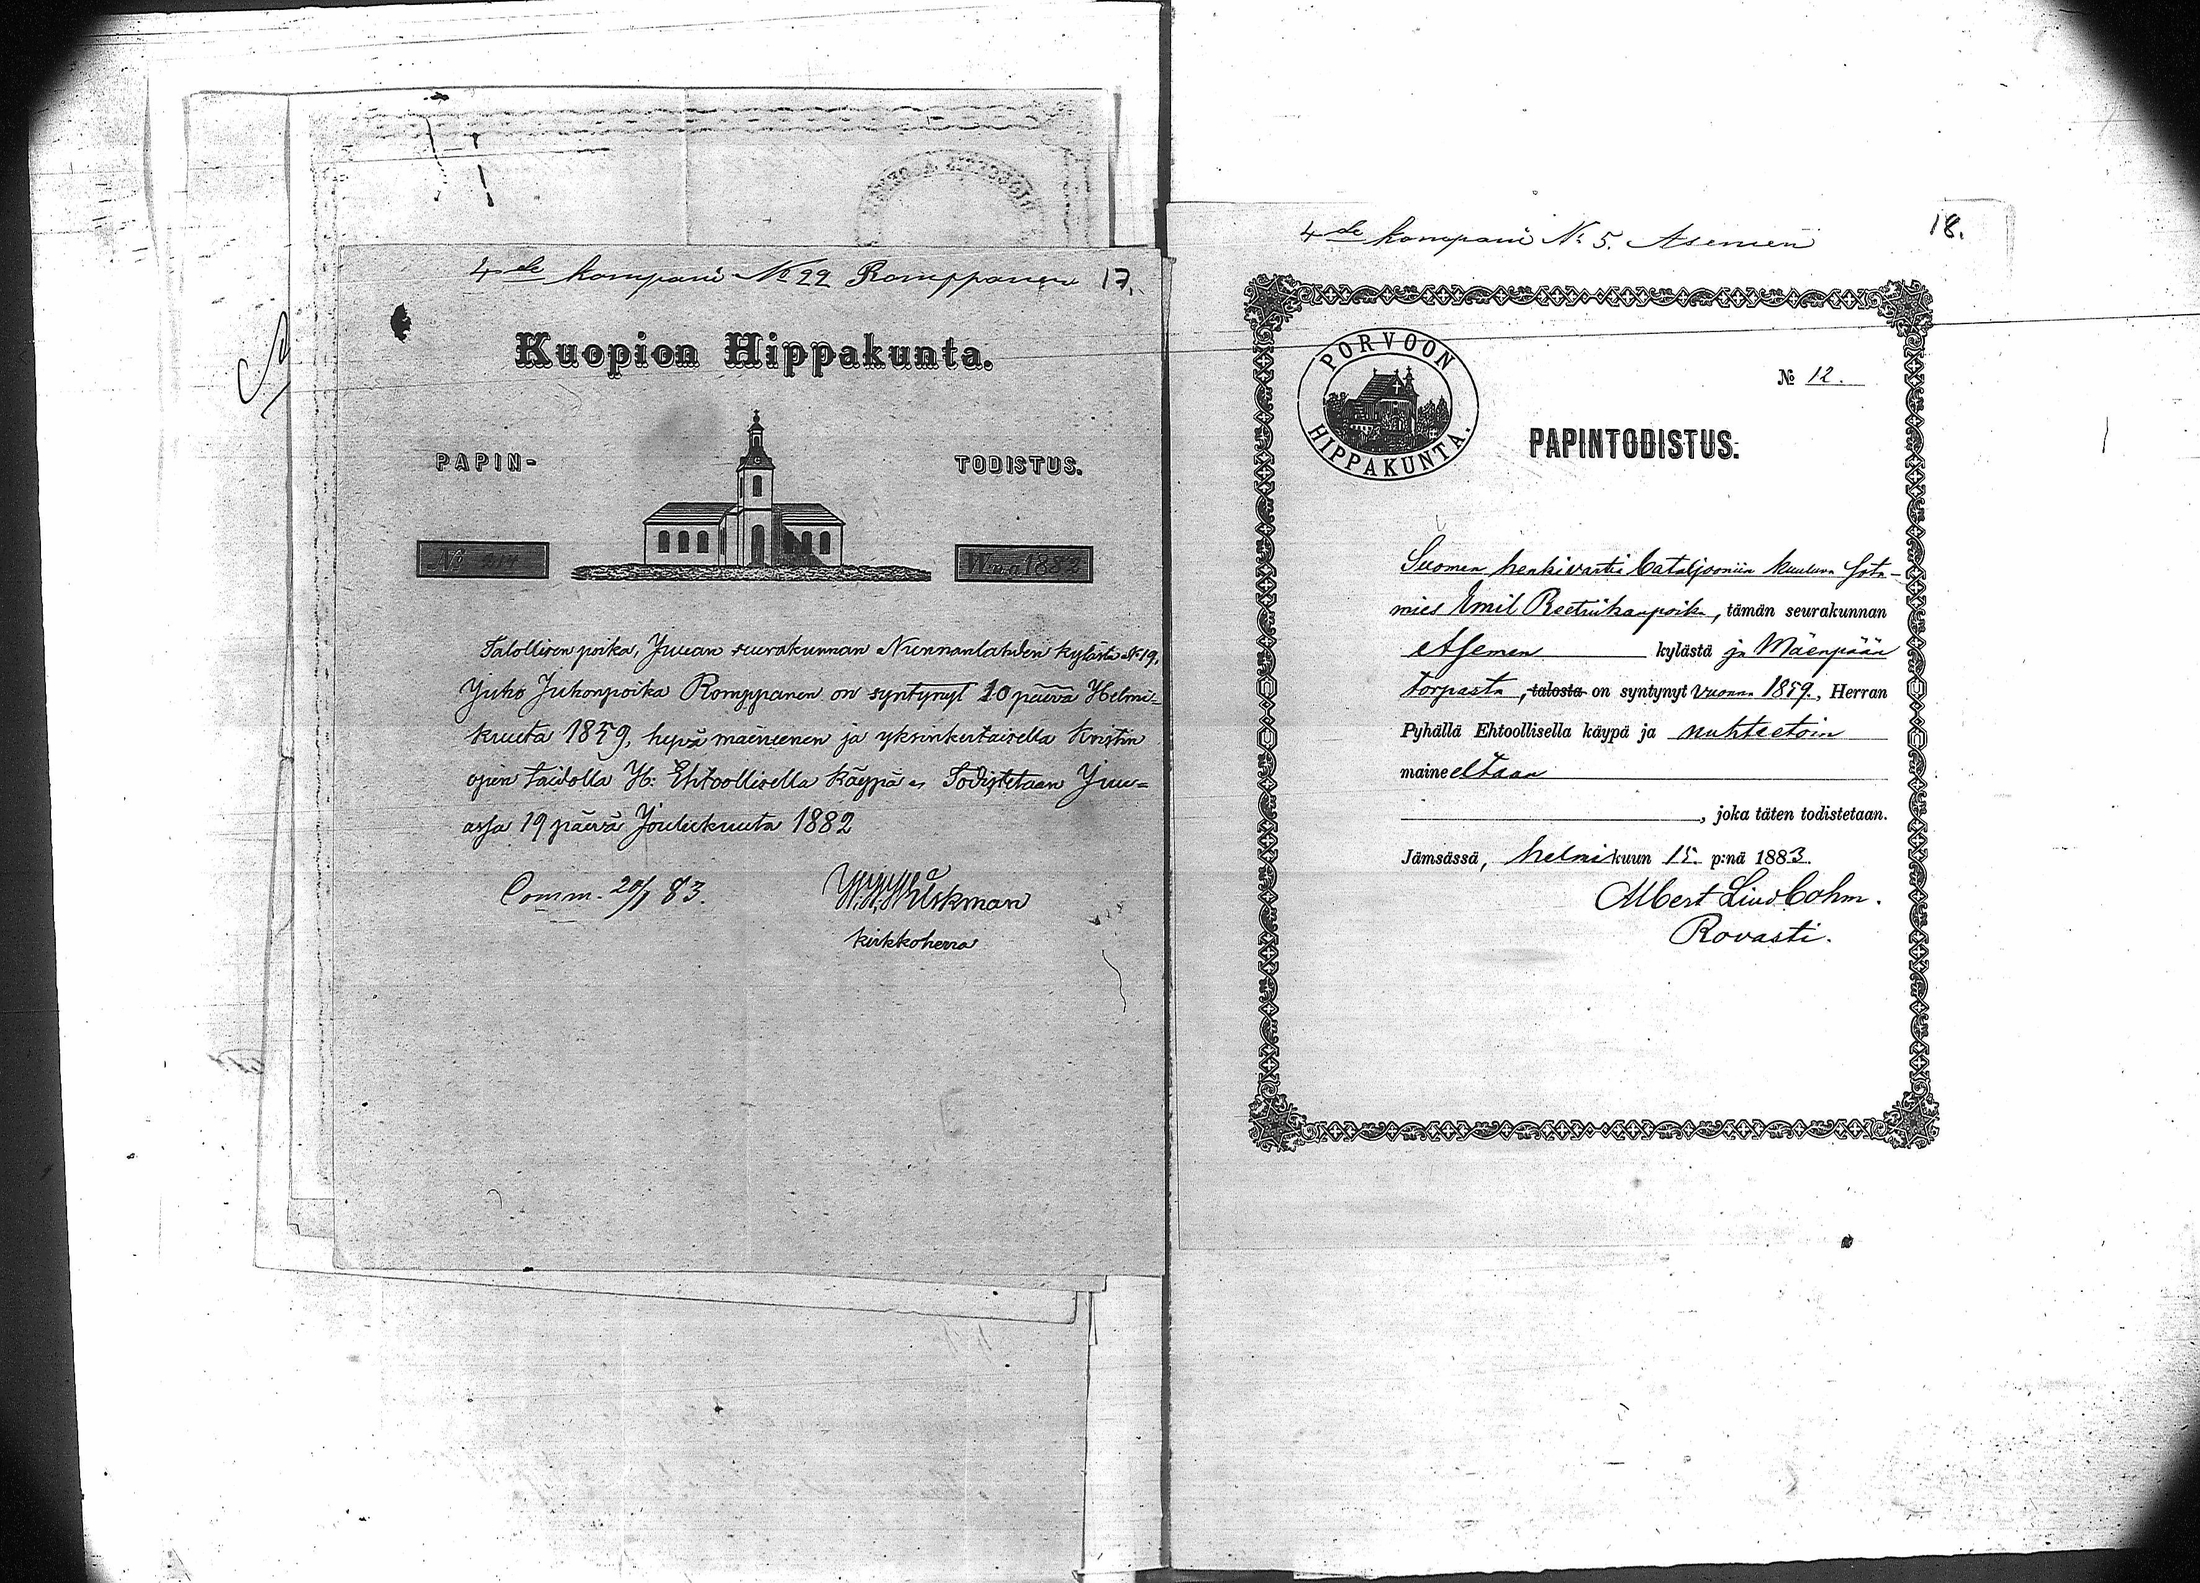 4de kompani No 22 Romppanen 17.
Kuopion Hippakunta.
PAPIN-
TODISTUS.
No 214
Wna 1882
Talollisen poika, Juuan seurakunnan Nunnanlahden kylästä No 19,
Juho Juhonpoika Romppanen on syntynyt 10 päivä Helmi-
kuuta 1859, hyvä maineinen ja yksinkertaisella Kristin
opin taidolla H: Ehtoollisella käypä; Todistetaan Juu-
assa 19 päivä Joulukuuta 1882
Comm. 20/1 83.
kirkkoherra
4de kompani No 5. Asemen
18.
PORVOON
HIPPAKUNTA.
No 12.
PAPINTODISTUS.
Suomen henkivartia bataljooniin kuuluva sota-
mies Emil Reetrikanpoika, tämän seurakunnan
Asemen kylästä ja Mäenpään
torpasta, talosta on syntynyt vuonna 1859, Herran
Pyhällä Ehtoollisella käypä ja nuhteetoin
maineeltaan
, joka täten todistetaan.
Jämsässä, helmikuun 15 p:nä 1883.
Albert Lindbohm.
Rovasti.